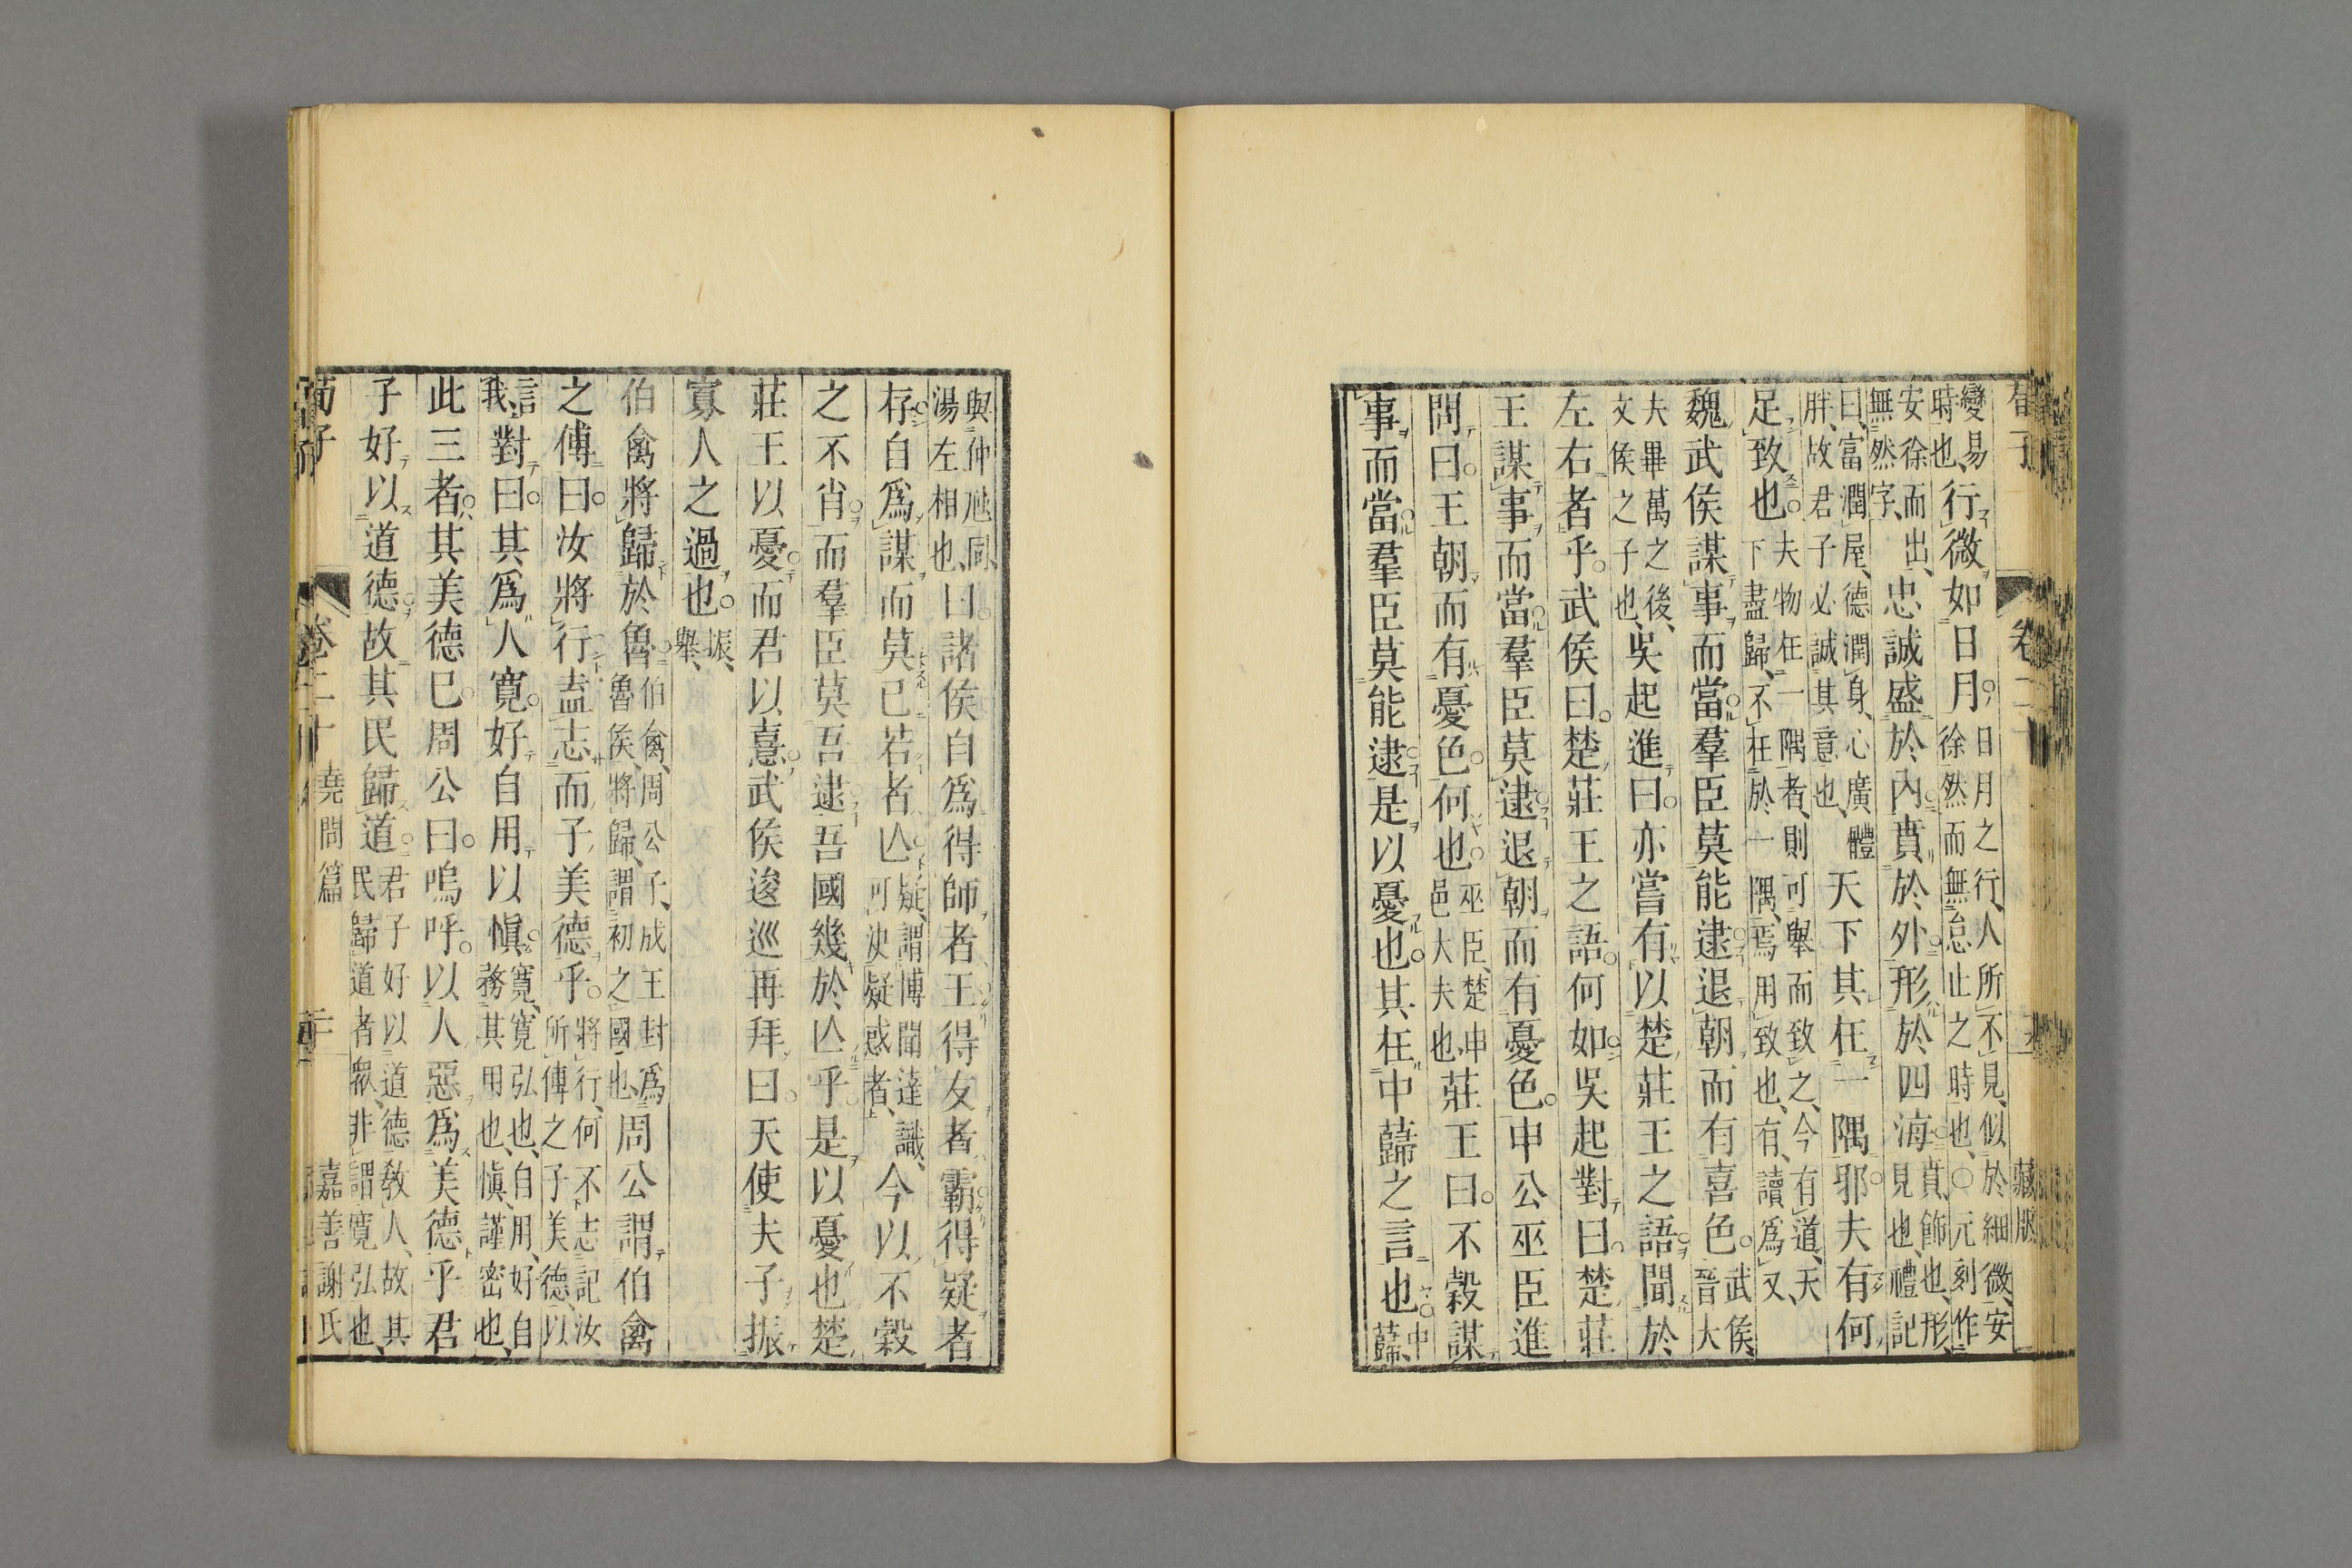 變易
時也、行微如日月日月之行、人所不見、似於細微、安
徐然而無怠止之時也、〇元刻作
安徐而出、
無然字、忠誠盛於內賁於外形於四海賁、飾也、形、
見也、禮記
曰、富潤屋、德潤身、心廣體
胖、故君子必誠其意也、天下其在一隅耶夫有何
足致也夫物在一隅者、則可舉而致之、今有道、天
下盡歸、不在於一隅、焉用致也、有、讀爲又、
魏武侯謀事而當羣臣莫能逮退朝而有喜色武侯、
晉大
夫畢萬之後、
文侯之子也、吳起進曰亦嘗有以楚莊王之語聞於
左右者乎武侯曰楚莊王之語何如吳起對曰楚莊
王謀事而當羣臣莫逮退朝而有憂色申公巫臣進
問曰王朝而有憂色何也巫臣、楚申
邑大夫也、莊王曰不穀謀
事而當羣臣莫能逮是以憂也其在中蘬之言也中
蘬、
與仲虺同、
湯左相也、曰諸侯自爲得師者王得友者霸得疑者
存自爲謀而莫己若者亾疑、謂博聞達識、
可決疑惑者、今以不穀
之不肖而羣臣莫吾逮吾國幾於亾乎是以憂也楚
莊王以憂而君以憙武侯逡巡再拜曰天使夫子振
寡人之過也振、
舉、
伯禽將歸於魯伯禽、周公子、成王封爲
魯侯、將歸、謂初之國也、周公謂伯禽
之傅曰汝將行盍志而子美德乎將行、何不志記汝
所傅之子美德、以
言
我、對曰其爲人寬好自用以愼寬、寬弘也、自用、好自
務其用也、愼、謹密也、
此三者其美德已周公曰嗚呼以人惡爲美德乎君
子好以道德故其民歸道君子好以道德敎人、故其
民歸道者衆、非謂寬弘也、
荀子
卷二十 堯問篇 嘉善謝氏
荀子 卷二十 藏版